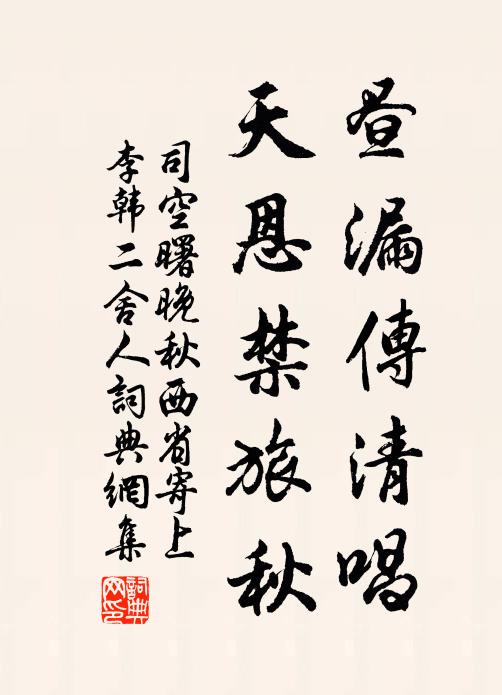 昼漏傳清唱
天恩禁旅秋
司空曙晚秋西省寄上
李韩二舍人詞典網集
詞典
网印